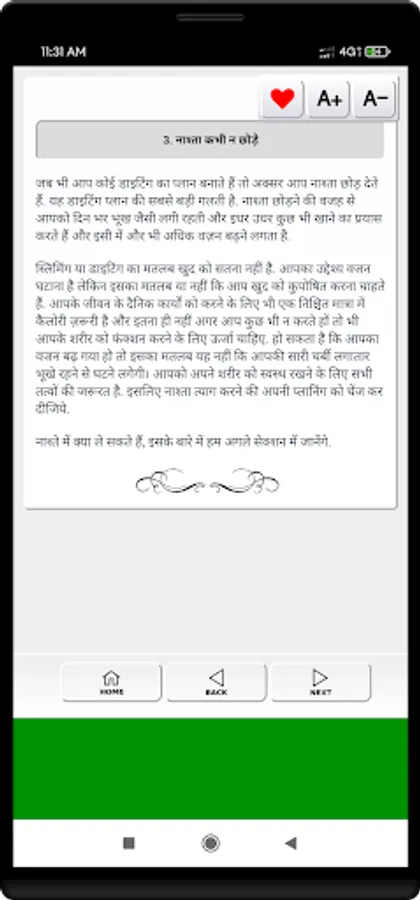 11:31 AM
4G
A+
A−
3. नाश्ता कभी न छोड़े
जब भी आप कोई डाइटिंग का प्लान बनाते हैं तो अक्सर आप नाश्ता छोड़ देते
हैं. यह डाइटिंग प्लान की सबसे बड़ी गलती है. नाश्ता छोड़ने की वजह से
आपको दिन भर भूख जैसी लगी रहती और इधर उधर कुछ भी खाने का प्रयास
करते हैं और इसी में और भी अधिक वज़न बढ़ने लगता है.
स्लिमिंग या डाइटिंग का मतलब खुद को सताना नहीं है. आपका उद्देश्य वजन
घटाना है लेकिन इसका मतलब या नहीं कि आप खुद को कुपोषित करना चाहते
हैं. आपके जीवन के दैनिक कार्यों को करने के लिए भी एक निश्चित मात्रा में
कैलोरी ज़रूरी है और इतना ही नहीं अगर आप कुछ भी न करते हों तो भी
आपके शरीर को फंक्शन करने के लिए ऊर्जा चाहिए. हो सकता है कि आपका
वजन बढ़ गया हो तो इसका मतलब यह नहीं कि आपकी सारी चर्बी लगातार
भूखे रहने से घटने लगेगी। आपको अपने शरीर को स्वस्थ रखने के लिए सभी
तत्वों की जरूरत है. इसलिए नाश्ता त्याग करने की अपनी प्लानिंग को चेंज कर
दीजिये.
नाश्ते में क्या ले सकते हैं, इसके बारे में हम अगले सेक्शन में जानेंगे.
HOME
BACK
NEXT